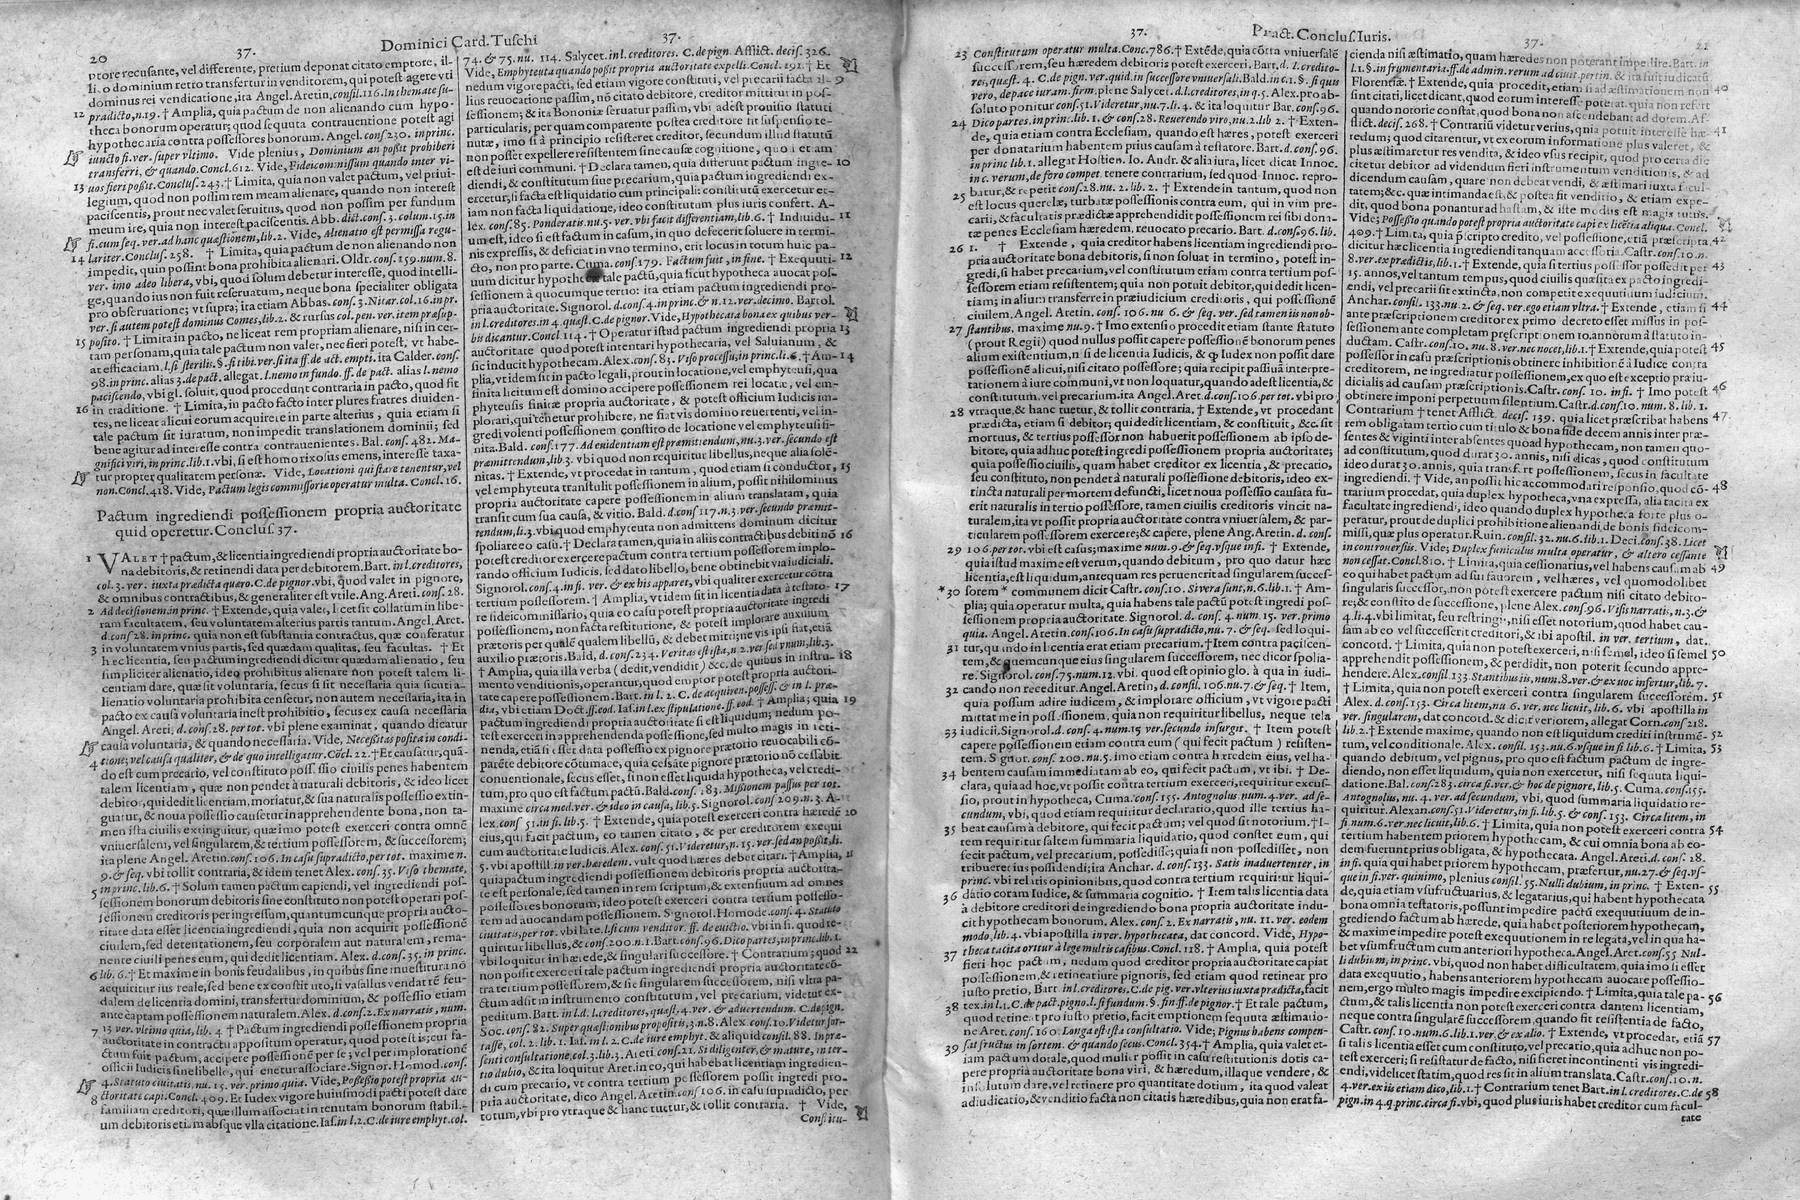 20 37. Dominici Card. Tuschi 37.
ptore recusante, vel differente, pretium deponat citato emptore, il-
li. o dominium retro transfertur in venditorem, qui potest agere vti
dominus rei vendicatione, ita Angel. Aretin. consil. 116. In themate su-
12 prædicto, n. 19. † Amplia, quia pactum de non alienando cum hypo-
theca bonorum operatur; quod sequuta contrauentione potest agi
hypothecaria contra possessores bonorum. Angel. cons. 230. in princ.
iuncto fi. ver. super vltimo. Vide plenius, Dominium an possit prohiberi
transferri, & quando. Concl. 612. Vide, Fideicommissum quando inter vi-
13 uos fieri possit. Conclus. 243. † Limita, quia non valet pactum, vel priui-
legium, quod non possim rem meam alienare, quando non interest
paciscentis, prout nec valet seruitus, quod non possim per fundum
meum ire, quia non interest paciscentis. Abb. dict. cons. 3. colum. 15. in
fi. cum seq. ver. ad hanc quæstionem, lib. 2. Vide, Alienatio est permissa regu-
14 lariter. Conclus. 258. † Limita, quia pactum de non alienando non
impedit, quin possint bona prohibita alienari. Oldr. cons. 159. num. 8.
ver. imo adeo libera, vbi, quod solum debetur interesse, quod intelli-
ge, quando ius non fuit reseruatum, neque bona specialiter obligata
pro obseruatione; vt supra; ita etiam Abbas. cons. 3. Nitar. col. 16. in pr.
ver. si autem potest dominus Comes, lib. 2. & rursus col. pen. ver. item præsup-
15 posito. † Limita in pacto, ne liceat rem propriam alienare, nisi in cer-
tam personam, quia tale pactum non valet, nec fieri potest, vt habe-
at efficaciam, l. si sterilis. §. si tibi. ver. si ita ff. de act. empti. ita Calder. cons.
98. in princ. alias 3. de pact. allegat. l. nemo in fundo. ff. de pact. alias l. nemo
paciscendo, vbi gl. soluit, quod procedunt contraria in pacto, quod sit
16 in traditione. † Limita, in pacto facto inter plures fratres diuiden-
tes, ne liceat alicui eorum acquirere in parte alterius, quia etiam si
tale pactum sit iuratum, non impedit translationem dominii; sed
bene agitur ad interesse contra contrauenientes. Bal. cons. 482. Ma-
gnifici viri, in princ. lib. 1. vbi, si est homo rixosus emens, interesse taxa-
tur propter qualitatem personæ. Vide, Locationi qui stare tenentur, vel
non. Concl. 418. Vide, Pactum legis commissoriæ operatur multa. Concl. 16.
Pactum ingrediendi possessionem propria auctoritate
quid operetur. Conclus. 37.
1 VALET † pactum, & licentia ingrediendi propria auctoritate bo-
na debitoris, & retinendi data per debitorem. Bart. in l. creditores,
col. 3. ver. iuxta prædicta quæro. C. de pignor. vbi, quod valet in pignore,
& omnibus contractibus, & generaliter est vtile. Ang. Areti. cons. 28.
2 Ad decisionem. in princ. † Extende, quia valet, licet sit collatum in libe-
ram facultatem, seu voluntatem alterius partis tantum. Angel. Aret.
d. cons. 28. in princ. quia non est substantia contractus, quæ conferatur
3 in voluntatem vnius partis, sed quædam qualitas, seu facultas. † Et
hæc licentia, seu pactum ingrediendi dicitur quædam alienatio, seu
simpliciter alienatio, ideo prohibitus alienare non potest talem li-
centiam dare, quæ sit voluntaria, secus si sit necessaria quia sicut a a-
lienatio voluntaria prohibita censetur, non autem necessaria, ita in
pacto ex causa voluntaria inest prohibitio, secus ex causa necessaria
Angel. Areti. d. cons. 28. per tot. vbi plene examinat, quando dicatur
causa voluntaria, & quando necessaria. Vide, Necessitas posita in condi-
tione; vel causa qualiter, & de quo intelligatur. Cōcl. 22. † Et causatur, quā-
4 do est cum precario, vel constituto possessio ciuilis penes habentem
talem licentiam, quæ non pendet à naturali debitoris, & ideo licet
debitor, qui dedit licentiam, moriatur, & sua naturalis possessio extin-
guatur, & noua possessio causetur in apprehendente bona, non ta-
men ista ciuilis extinguitur, quæ imo potest exerceri contra omnē
vniuersalem, vel singularem, & tertium possessorem, & successorem;
ita plene Angel. Aretin. cons. 106. In casu supradicto, per tot. maxime n.
9. & seq. vbi tollit contraria, & idem tenet Alex. cons. 35. Viso themate,
5 in princ. lib. 6. † Solum tamen pactum capiendi, vel ingrediendi pos-
sessionem bonorum debitoris sine constituto non potest operari pos-
sessionem creditoris per ingressum, quantumcunque propria aucto-
ritate data esset licentia ingrediendi, quia non acquirit possessionē
ciuilem, sed detentationem, seu corporalem aut naturalem, rema-
nente ciuili penes eum, qui dedit licentiam. Alex. d. cons. 35. in princ.
6 lib. 6. † Et maxime in bonis feudalibus, in quibus sine inuestitura nō
acquiritur ius reale, sed bene ex constituto, si vasallus vendat rē feu-
dalem de licentia domini, transfertur dominium, & possessio etiam
ante captam possessionem naturalem. Alex. d. cons. 2. Ex narratis, num.
7 13. ver. vltimo quia, lib. 4. † Pactum ingrediendi possessionem propria
auctoritate in contractu appositum operatur, quod potest is; cui fa-
ctum fuit pactum, accipere possessionē per se; vel per implorationē
officii Iudicis sine libello, qui tenetur associare. Signor. Homod. cons.
4. Statuto ciuitatis, nu. 15. ver. primo quia. Vide, Possessio potest propria au-
8 ctoritate capi. Concl. 409. Et Iudex vigore huiusmodi pacti potest dare
familiam creditori, quæ illum associat in tenutam bonorum stabil-
um debitoris etiam absque vlla citatione. Ias. in l. 2. C. de iure emphyt. col.
74. & 75. nu. 114. Salycet. in l. creditores. C. de pign. Afflict. decis. 326.
Vide, Emphyteuta quando possit propria auctoritate expelli. Concl. 191. † Et
nedum vigore pacti, sed etiam vigore constituti, vel precarii facta il- 9
lius reuocatione passim, nō citato debitore, creditor mittitur in pos-
sessionem; & ita Bononiæ seruatur passim, vbi adest prouisio statuti
particularis, per quam comparente postea creditore sit suspensio te-
nutæ, imo si à principio resisteret creditor, secundum illud statutū
non posset expellere resistentem sine causæ cognitione, quo i et am
est de iuri communi. † Declara tamen, quia differunt pactum ingre- 10
diendi, & constitutum siue precarium, quia pactum ingrediendi ex-
ercetur, si facta est liquidatio cum principali: constitutū exercetur et-
iam non facta liquidatione, ideo constitutum plus iuris confert. A-
lex. cons. 85. Ponderatis. nu. 5. ver. vbi facit differentiam, lib. 6. † Indiuidu- 11
um est, ideo si est factum in casum, in quo defecerit soluere in termi-
nis expressis, & deficiat in vno termino, erit locus in totum huic pa-
cto, non pro parte. Cuma. cons. 179. Factum fuit, in fine. † Exequuti- 12
uum dicitur hypothecæ tale pactū, quia sicut hypotheca auocat pos-
sessionem à quocumque tertio: ita etiam pactum ingrediendi pro-
pria auctoritate. Signorol. d. cons. 4. in princ. & n. 12. ver. decimo. Bartol.
in l. creditores. in 4. quæst. C. de pignor. Vide, Hypothecata bona ex quibus ver-
bis dicantur. Concl. 114. † Operatur istud pactum ingrediendi propria 13
auctoritate quod potest intentari hypothecaria, vel Saluianum, &
sic inducit hypothecam. Alex. cons. 83. Viso processu, in princ. li. 6. † Am- 14
plia, vt idem sit in pacto legali, prout in locatione, vel emphyteusi, qua
finita licitum est domino accipere possessionem rei locatæ, vel em-
phyteusis finitæ propria auctoritate, & potest officium Iudicis im-
plorari, qui tenetur prohibere, ne fiat vis domino reuertenti, vel in-
gredi volenti possessionem constito de locatione vel emphyteusi fi-
nita. Bald. cons. 177. Ad euidentiam est præmittendum, nu. 3. ver. secundo est
præmittendum, lib. 3. vbi quod non requiritur libellus, neque alia solē-
nitas. † Extende, vt procedat in tantum, quod etiam si conductor, 15
vel emphyteuta transtulit possessionem in alium, possit nihilominus
propria auctoritate capere possessionem in alium translatam, quia
transit cum sua causa, & vitio. Bald. d. cons. 117. n. 3. ver. secundo præmit-
tendum, li. 3. vbi quod emphyteuta non admittens dominum dicitur
spoliare eo casu. † Declara tamen, quia in aliis contractibus debiti nō 16
potest creditor exercere pactum contra tertium possessorem implo-
rando officium Iudicis, sed dato libello, bene obtinebit via iudiciali.
Signorol. cons. 4. in fi. ver. & ex his apparet, vbi qualiter exercetur cōtra
tertium possessorem. † Amplia, vt idem sit in licentia data à testato- 17
re fideicommissario, quia eo casu potest propria auctoritate ingredi
possessionem, non facta restitutione, & potest implorare auxilium
prætoris per qualē qualem libellū, & debet mitti; ne vis ipsi fiat, etiā
auxilio prætoris. Bald. d. cons. 234. Veritas est ista, n. 2. ver. sed vnum, lib. 3.
† Amplia, quia illa verba (dedit, vendidit) &c. de quibus in instru- 18
mento venditionis, operantur, quod emptor potest propria auctori-
tate capere possessionem. Bart. in l. 2. C. de acquiren. possess. & in l. præ-
dia, vbi etiam Doct. ff. eod. Ias. in l. ex stipulatione. ff. eod. † Amplia; quia 19
pactum ingrediendi propria auctoritate si est liquidum; nedum po-
test exerceri in apprehendenda possessione, sed multo magis in reti-
nenda, etiā si esset data possessio ex pignore prætorio reuocabili cō-
parēte debitore cōtumace, quia cessāte pignore prætorio nō cessabit
conuentionale, secus esset, si non esset liquida hypotheca, vel credi-
tum, pro quo est factum pactū. Bald. cons. 283. Missionem passus per tot.
maxime circa med. ver. & ideo in causa, lib. 5. Signorol. cons. 209. n. 3. A-
lex. cons. 51. in fi. lib. 5. † Extende, quia potest exerceri contra hæredē 20
eius, qui fecit pactum, eo tamen citato, & per creditorem exequi
cum auctoritate Iudicis. Alex. cons. 51. Videretur, n. 15. ver. sed an possit. li.
5. vbi apostil. in ver. hæredem. vult quod hæres debet citari. † Amplia, 21
quia pactum ingrediendi possessionem debitoris propria auctorita-
te est personale, sed tamen in rem scriptum, & extensiuum ad omnes
possessores bonorum, ideo potest exerceri contra tertium possesso-
rem ad auocandam possessionem. Signorol. Homode. cons. 4. Statuto
ciuitatis, per tot. vbi late. l. si cum venditor. ff. de euictio. vbi in fi. quod re-
quiritur libellus, & cons. 200. n. 1. Bart. cons. 96. Dico partes, in princ. lib. 1.
vbi loquitur in hærede, & singulari successore. † Contrarium; quod 22
non possit exerceri tale pactum ingrediendi propria auctoritate cō-
tra tertium possessorem, & sic singularem successorem, nisi vltra pa-
ctum adsit in instrumento constitutum, vel precarium, videtur ex-
pressum. Bart. in l. d. l. creditores, quæst. 4. ver. & aduertendum. C. de pign.
Soc. cons. 82. Super quæstionibus propositis, 3. n. 8. Alex. cons. 10. Videtur for-
tasse, col. 2. lib. 1. Ias. in l. 2. C. de iure emphyt. & aliquid consil. 88. In præ-
senti consultatione, col. 3. lib. 3. Areti. cons. 21. Si diligenter, & mature, in ter-
tio dubio, & ita loquitur Aret. in eo, qui habebat licentiam ingredien-
di cum precario, vt contra tertium possessorem possit ingredi pro-
pria auctoritate, dico Angel. Aretin. cons. 106. in casu supradicto, per
totum, vbi pro vtraque & hanc tuetur, & tollit contraria. † Vide,
Constitu-
37. Pract. Conclus. Iuris. 37. 21
23 Constitutum operatur multa. Conc. 786. † Extēde, quia cōtra vniuersalē
successorem, seu hæredem debitoris potest exerceri, Bart. d. l. credito-
res, quæst. 4. C. de pign. ver. quid in successore vniuersali. Bald. in c. 1. §. si quo
vero, de pace iuram. firm. plene Salycet. d. l. creditores, in q. 5. Alex. pro ab-
soluto ponit cons. 51. Videretur, nu. 7. li. 4. & ita loquitur Bar. cons. 96.
24 Dico partes, in princ. lib. 1. & cons. 28. Reuerendo viro, nu. 2. lib. 2. † Exten-
de, quia etiam contra Ecclesiam, quando est hæres, potest exerceri
per donatarium habentem prius causam à testatore. Bart. d. cons. 96.
in princ. lib. 1. allegat Hostien. Io. Andr. & alia iura, licet dicat Innoc.
in c. verum, de foro compet. tenere contrarium, sed quod Innoc. repro-
batur, & repetit cons. 28. nu. 2. lib. 2. † Extende in tantum, quod non
25 est locus querelæ, turbatæ possessionis contra eum, qui in vim pre-
carii, & facultatis prædictæ apprehendidit possessionem rei sibi dona-
tæ penes Ecclesiam hæredem, reuocato precario. Bart. d. cons. 96. lib.
26 1. † Extende, quia creditor habens licentiam ingrediendi pro-
pria auctoritate bona debitoris, si non soluat in termino, potest in-
gredi, si habet precarium, vel constitutum etiam contra tertium pos-
sessorem etiam resistentem; quia non potuit debitor, qui dedit licen-
tiam; in alium transferre in præiudicium creditoris, qui possessionē
ciuilem. Angel. Aretin. cons. 106. nu. 6. & seq. ver. sed tamen iis non ob-
27 stantibus. maxime nu. 9. † Imo extensio procedit etiam stante statuto
(prout Regii) quod nullus possit capere possessionē bonorum penes
alium existentium, nisi de licentia Iudicis, & ꝙ Iudex non possit dare
possessionē alicui, nisi citato possessore; quia recipit passiuā interpre-
tationem à iure communi, vt non loquatur, quando adest licentia, &
constitutum, vel precarium. ita Angel. Aret. d. cons. 106. per tot. vbi pro
28 vtraque, & hanc tuetur, & tollit contraria. † Extende, vt procedant
prædicta, etiam si debitor; qui dedit licentiam, & constituit, &c. sit
mortuus, & tertius possessor non habuerit possessionem ab ipso de-
bitore, quia adhuc potest ingredi possessionem propria auctoritate;
quia possessio ciuilis, quam habet creditor ex licentia, & precatio,
seu constituto, non pendet à naturali possessione debitoris, ideo ex-
tincta naturali per mortem defuncti, licet noua possessio causata fu-
erit naturalis in tertio possessore, tamen ciuilis creditoris vincit na-
turalem, ita vt possit propria auctoritate contra vniuersalem, & par-
ticularem possessorem exercere; & capere, plene Ang. Aretin. d. cons.
29 106. per tot. vbi est casus; maxime num. 9. & seq. vsque in fi. † Extende,
quia istud maxime est verum, quando debitum, pro quo datur hæc
licentia, est liquidum, antequam res peruenerit ad singularem succes-
*30 sorem * communem dicit Castr. cons. 10. Si vera sunt, n. 6. lib. 1. † Am-
plia; quia operatur multa, quia habens tale pactū potest ingredi pos-
sessionem propria auctoritate. Signorol. d. cons. 4. num. 15. ver. primo
quia. Angel. Aretin. cons. 106. In casu supradicto, nu. 7. & seq. sed loqui-
31 tur, quando in licentia erat etiam precarium. † Item contra paciscen-
tem, & quemcunque eius singularem successorem, nec dicor spolia-
re. Signorol. cons. 75. num. 12. vbi. quod est opinio glo. à qua in iudi-
32 cando non receditur. Angel. Aretin. d. consil. 106. nu. 7. & seq. † Item,
quia possum adire iudicem, & implorare officium, vt vigore pacti
mittat me in possessionem, quia non requiritur libellus, neque tela
33 iudicii. Signorol. d. cons. 4. num. 15. ver. secundo insurgit. † Item potest
capere possessionem etiam contra eum (qui fecit pactum) resisten-
tem. Signor. cons. 200. nu. 5. imo etiam contra hæredem eius, vel ha-
34 bentem causam immediatam ab eo, qui fecit pactum, vt ibi. † De-
clara, quia ad hoc, vt possit contra tertium exerceri, requiritur excus-
sio, prout in hypotheca, Cuma. cons. 155. Antognolus num. 4. ver. ad se-
cundum, vbi, quod etiam requiritur declaratio, quod ille tertius ha-
35 beat causam à debitore, qui fecit pactum; vel quod sit notorium. † I-
tem requiritur saltem summaria liquidatio, quod constet eum, qui
fecit pactum, vel precarium, possedisse; quia si non possedisset, non
tribueret ius possidendi; ita Anchar. d. cons. 133. Satis inaduertenter, in
princ. vbi relatis opinionibus, quod contra tertium requiritur liqui-
36 datio coram Iudice, & summaria cognitio. † Item talis licentia data
à debitore creditori de ingrediendo bona propria auctoritate indu-
cit hypothecam bonorum. Alex. cons. 2. Ex narratis, nu. 11. ver. eodem
modo, lib. 4. vbi apostilla in ver. hypothecata, dat concord. Vide, Hypo-
theca tacita oritur à lege multis casibus. Concl. 118. † Amplia, quia potest
37 fieri hoc pactum, nedum quod creditor propria auctoritate capiat
possessionem, & retineat iure pignoris, sed etiam quod retineat pro
iusto pretio, Bart. in l. creditores. C. de pig. ver. vlterius iuxta prædicta, facit
38 tex. in l. 1. C. de pact. pigno. l. si fundum. §. fin. ff. de pignor. † Et tale pactum,
quod retineat pro iusto pretio, facit emptionem sequuta æstimatio-
ne Aret. cons. 160. Longa est ista consultatio. Vide; Pignus habens compen-
39 sat fructus in sortem. & quando secus. Concl. 354. † Amplia, quia valet et-
iam pactum dotale, quod mulier possit in casu restitutionis dotis ca-
pere propria auctoritate bona viri, & hæredum, illaque vendere, &
in solutum dare, vel retinere pro quantitate dotium, ita quod valeat
adiudicatio, & venditio facta non citatis hæredibus, quia non erat fa-
cienda nisi æstimatio, quam hæredes non poterant impedire. Bart. in
l. 1. §. in frumentaria. ff. de admin. rerum ad ciuit. pertin. & ita fuit iudicatū
Florentiæ. † Extende, quia procedit, etiam si ad æstimationem non 40
sint citati, licet dicant, quod eorum interesse poterat. quia non refert
quando notorie constat, quod bona non ascendebant ad dotem. Af-
flict. decis. 268. † Contrariū videtur verius, quia potuit interesse hæ- 41
redum; quod citarentur, vt ex eorum informatione plus valeret, &
plus æstimaretur res vendita, & ideo vbi recipit, quod pro certa die
citetur debitor ad videndum fieri instrumentum venditionis, & ad
dicendum causam, quare non debeat vendi, & æstimari iuxta facul-
tatem; &c. quæ intimanda est, & postea sit venditio, & etiam expe-
dit, quod bona ponantur ad hastam, & iste modus est magis tutus.
Vide; Possessio quando potest propria auctoritate capi ex licētia aliqua. Concl.
409. † Limita, quia pscripto credito, vel possessione, etiā præscripta 42
dicitur hæc licentia ingrediendi tanquam accessoria. Castr. cons. 10. n.
8. ver. ex prædictis, lib. 1. † Extende, quia si tertius possessor possedit per 43
15. annos, vel tantum tempus, quod ciuilis quæsita ex pacto ingredi-
endi, vel precarii sit extincta, non competit exequutiuum iudicium.
Anchar. consil. 133. nu. 2. & seq. ver. ego etiam vltra. † Extende, etiam si 44
ante præscriptionem creditor ex primo decreto esset missus in pos-
sessionem ante completam præscriptionem 10. annorum à statuto in-
ductam. Castr. cons. 10. nu. 8. ver. nec nocet, lib. 1. † Extende, quia potest 45
possessor in casu præscriptionis obtinere inhibitionē à Iudice contra
creditorem, ne ingrediatur possessionem, ex quo est exceptio præiu-
dicialis ad causam præscriptionis. Castr. cons. 10. infi. † Imo potest 46
obtinere imponi perpetuum silentium. Castr. d. cons. 10. num. 8. lib. 1.
Contrarium † tenet Afflict. decis. 139. quia licet præscribat habens 47
rem obligatam tertio cum titulo & bona fide decem annis inter præ-
sentes & viginti inter absentes quoad hypothecam, non tamen quo-
ad constitutum, quod durat 30. annis, nisi dicas, quod constitutum
ideo durat 30. annis, quia transfert possessionem, secus in facultate
ingrediendi. † Vide, an possit hic accommodari responsio, quod cō- 48
trarium procedat, quia duplex hypotheca, vna expressa, alia tacita ex
facultate ingrediendi, ideo quando duplex hypotheca forte plus o-
peratur, prout de duplici prohibitione alienandi, de bonis fideicom-
missi, quæ plus operatur. Ruin. consil. 32. nu. 6. lib. 1. Deci. cons. 38. Licet
in controuersiis. Vide; Duplex funiculus multa operatur, & altero cessante
non cessat. Concl. 810. † Limita, quia cessionarius, vel habens causam ab 49
eo qui habet pactum ad sui fauorem, vel hæres, vel quomodolibet
singularis successor, non potest exercere pactum nisi citato debito-
re; & constito de successione, plene Alex. cons. 96. Visis narratis, n. 3. &
4. li. 4. vbi limitat, seu restringit, nisi esset notorium, quod habet cau-
sam ab eo vel successerit creditori, & ibi apostil. in ver. tertium, dat.
concord. † Limita, quia non potest exerceri, nisi semel, ideo si semel 50
apprehendit possessionem, & perdidit, non poterit secundo appre-
hendere. Alex. consil. 133. Stantibus in, num. 8. ver. & ex uoc infertur, lib. 7.
† Limita, quia non potest exerceri contra singularem successorem. 51
Alex. d. cons. 153. Circa litem, nu. 6. ver. nec licuit, lib. 6. vbi apostilla in
ver. singularem, dat concord. & dicit veriorem, allegat Corn. cons. 218.
lib. 2. † Extende maxime, quando non est liquidum crediti instrumē- 52
tum, vel conditionale. Alex. consil. 153. nu. 6. vsque in fi. lib. 6. † Limita, 53
quando debitum, vel pignus, pro quo est factum pactum de ingre-
diendo, non esset liquidum, quia non exercetur, nisi sequuta liqui-
datione. Bal. cons. 283. circa fi. ver. & hoc de pignore, lib. 5. Cuma. cons. 155.
Antognolus, nu. 4. ver. ad secundum, vbi, quod summaria liquidatio re-
quiritur. Alexan. cons. 51. Videretur, in fi. lib. 5. & cons. 153. Circa litem, in
fi. num. 6. ver. nec licuit, lib. 6. † Limita, quia non potest exerceri contra 54
tertium habentem priorem hypothecam, & cui omnia bona ab eo-
dem fuerunt prius obligata, & hypothecata. Angel. Areti. d. cons. 28.
infi. quia qui habet priorem hypothecam, præfertur, nu. 27. & vs-
que in fi. ver. quinimo, plenius consil. 55. Nulli dubium, in princ. † Exten- 55
de, quia etiam vsufructuarius, & legatarius, qui habent hypothecata
bona omnia testatoris, possunt impedire pactū exequutiuum de in-
grediendo factum ab hærede, quia habet posteriorem hypothecam,
& maxime impediret exequutionem in re legata, vel in qua ha-
bet vsumfructum cum anteriori hypotheca. Angel. Aret. cons. 55. Nul-
li dubium, in princ. vbi, quod non habet difficultatem, quia imo si esset
data exequutio, habens anteriorem hypothecam auocare possessio-
nem, ergo multo magis impedire excipiendo. † Limita, quia tale pa- 56
ctum, & talis licentia non potest exerceri contra dantem licentiam,
neque contra singularē successorem, quando sit resistentia de facto,
Castr. cons. 10. num. 6. lib. 1. ver. & ex alio. † Extende, vt procedat, etiā 57
si talis licentia esset cum constituto, vel precario, quia adhuc non po-
test exerceri; si resistatur de facto, nisi fieret incontinenti vis ingredi-
endi, videlicet statim, quod res sit in alium translata. Castr. cons. 10. n.
4. ver. ex iis etiam dico, lib. 1. † Contrarium tenet Bart. in l. creditores. C. de 58
pign. in 4. q. princ. circa fi. vbi, quod plus iuris habet creditor cum facul-
tate